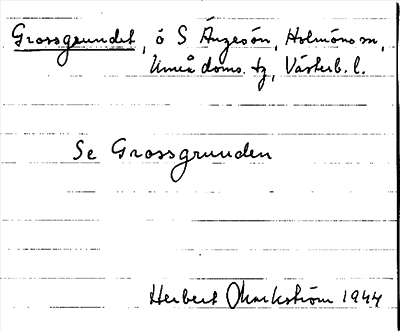 Grossgrundet, ö S Ängesön, Holmöns sn,
Umeå doms. tg, Västerb. l.
Se Grossgrunden
Herbert Markström 1944